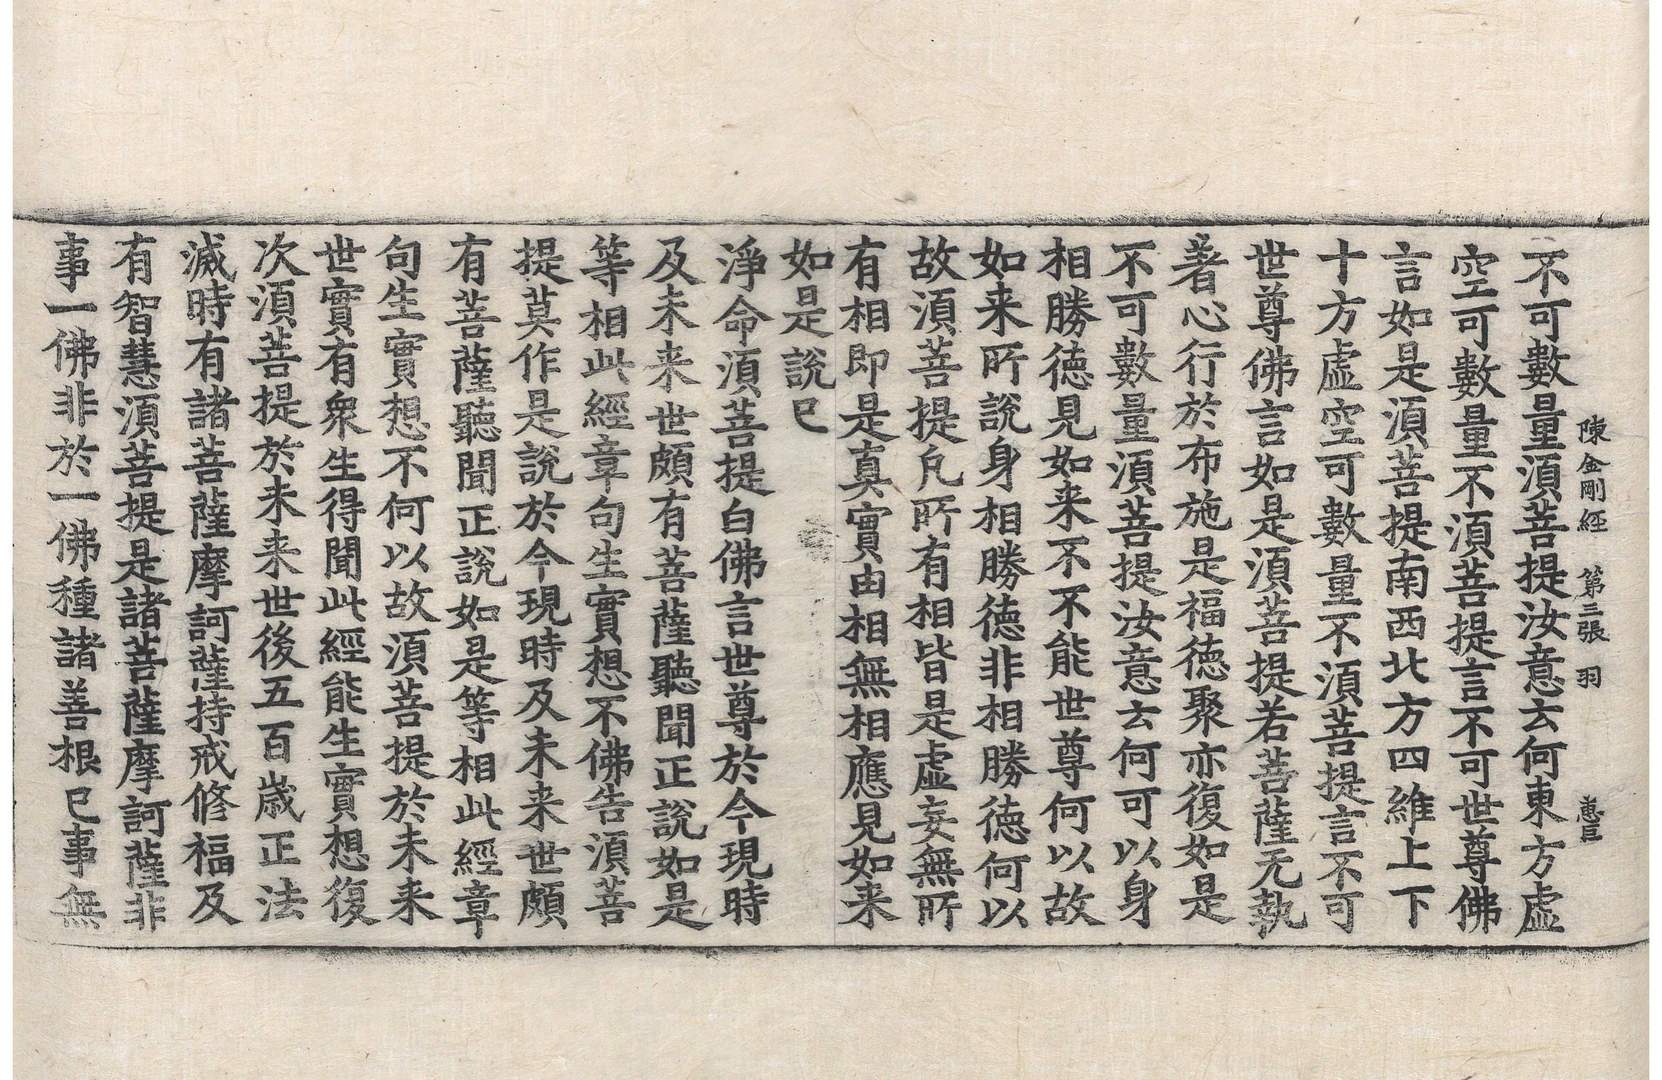 陳金剛經 第三張 羽 惠巨
不可數量須菩提汝意云何東方虛
空可數量不須菩提言不可世尊佛
言如是須菩提南西北方四維上下
十方虛空可數量不須菩提言不可
世尊佛言如是須菩提若菩薩无執
著心行於布施是福德聚亦復如是
不可數量須菩提汝意云何可以身
相勝德見如来不不能世尊何以故
如来所說身相勝德非相勝德何以
故須菩提凡所有相皆是虛妄無所
有相即是真實由相無相應見如来
如是說已
淨命須菩提白佛言世尊於今現時
及未来世頗有菩薩聽聞正說如是
等相此經章句生實想不佛告須菩
提莫作是說於今現時及未来世頗
有菩薩聽聞正說如是等相此經章
句生實想不何以故須菩提於未来
世實有衆生得聞此經能生實想復
次須菩提於未来世後五百歲正法
滅時有諸菩薩摩訶薩持戒修福及
有智慧須菩提是諸菩薩摩訶薩非
事一佛非於一佛種諸善根已事無